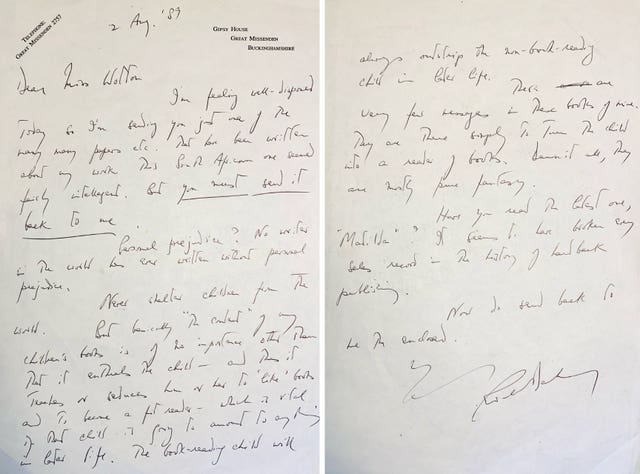 TELEPHONE
GREAT MISSENDEN 2757
2 Aug. '89
GIPSY HOUSE
GREAT MISSENDEN
BUCKINGHAMSHIRE
Dear Miss Wotton
I'm feeling well-disposed
today so I'm sending you just one of the
many many papers etc. that has been written
about my work. This South African one seemed
fairly intelligent. But you must send it
back to me
Personal prejudice? No writer
in the world has ever written without personal
prejudice.
Never shelter children from the
world.
But basically "the content" of my
children's books is of no importance other than
that it enthralls the child – and thus it
teaches or seduces him or her to "like" books
and to become a fit reader – which is vital
if that child is going to amount to anything
in later life. The book-reading child will
always outstrip the non-book-reading
child in later life.
There are
very few messages in these books of mine.
They are there simply to turn the child
into a reader of books. Damn it all, they
are mostly pure fantasy.
Have you read the latest one,
"Matilda"? It seems to have broken every
sales record in the history of hardback
publishing.
Now do send back to
me the enclosed.
Roald Dahl